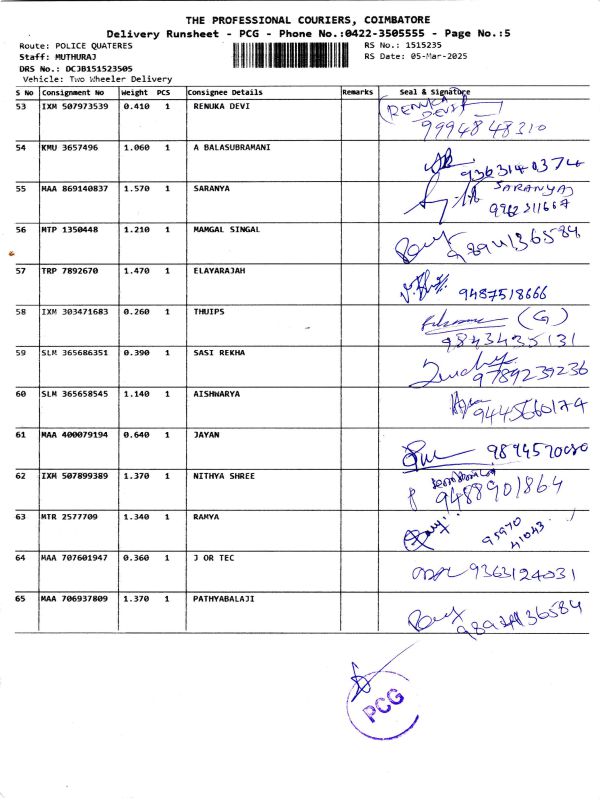 THE PROFESSIONAL COURIERS, COIMBATORE
Delivery Runsheet - PCG - Phone No.:0422-3505555 - Page No.:5
Route: POLICE QUATERES RS No.: 1515235
Staff: MUTHURAJ RS Date: 05-Mar-2025
DRS No.: DCJB151523505
Vehicle: Two Wheeler Delivery
S No Consignment No Weight PCS Consignee Details Remarks Seal & Signature
53 IXM 507973539 0.410 1 RENUKA DEVI RENUKA DEVI
9994848310
54 KMU 3657496 1.060 1 A BALASUBRAMANI 9363140374
55 MAA 869140837 1.570 1 SARANYA SARANYA
9962311667
56 MTP 1350448 1.210 1 MAMGAL SINGAL 9894136584
57 TRP 7892670 1.470 1 ELAYARAJAH 9487518666
58 IXM 303471683 0.260 1 THUIPS (G)
9843435131
59 SLM 365686351 0.390 1 SASI REKHA 9789239236
60 SLM 365658545 1.140 1 AISHWARYA 9445660174
61 MAA 400079194 0.640 1 JAYAN 9894570080
62 IXM 507899389 1.370 1 NITHYA SHREE 9488901864
63 MTR 2577709 1.340 1 RAMYA 95970
41043
64 MAA 707601947 0.360 1 J OR TEC 9363124031
65 MAA 706937809 1.370 1 PATHYABALAJI 9894136584
PCG